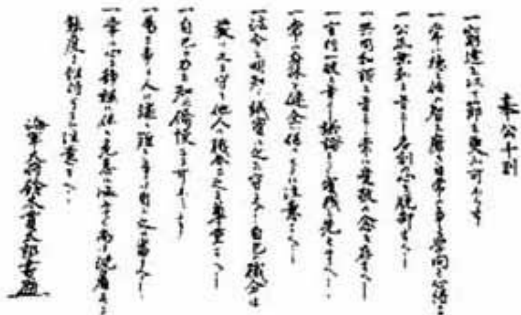 奉公十則
一 窮達を以て節を更ふ可からず
一 常に徳を修め智を磨き日常の事を学問と心得よ
一 公正無私を旨とし名利の心を脱却すべし
一 共同和諧を旨とし常に愛敬の念を存すべし
一 言行一致を旨とし議論より実践を先とすべし
一 常に身体を健全に保つ事に注意すべし
一 法令を明知し誠実に之を守るべし自己の職分は
厳に之を守り他人の職分は之を尊重すべし
一 自己の力を知れ驕慢なる可からず
一 易き事は人に譲り難き事は自ら之に当るべし
一 常に心を静謐に保ち危急に臨みては尚沈着なる
態度を維持するよう注意すべし
海軍大将鈴木貫太郎書